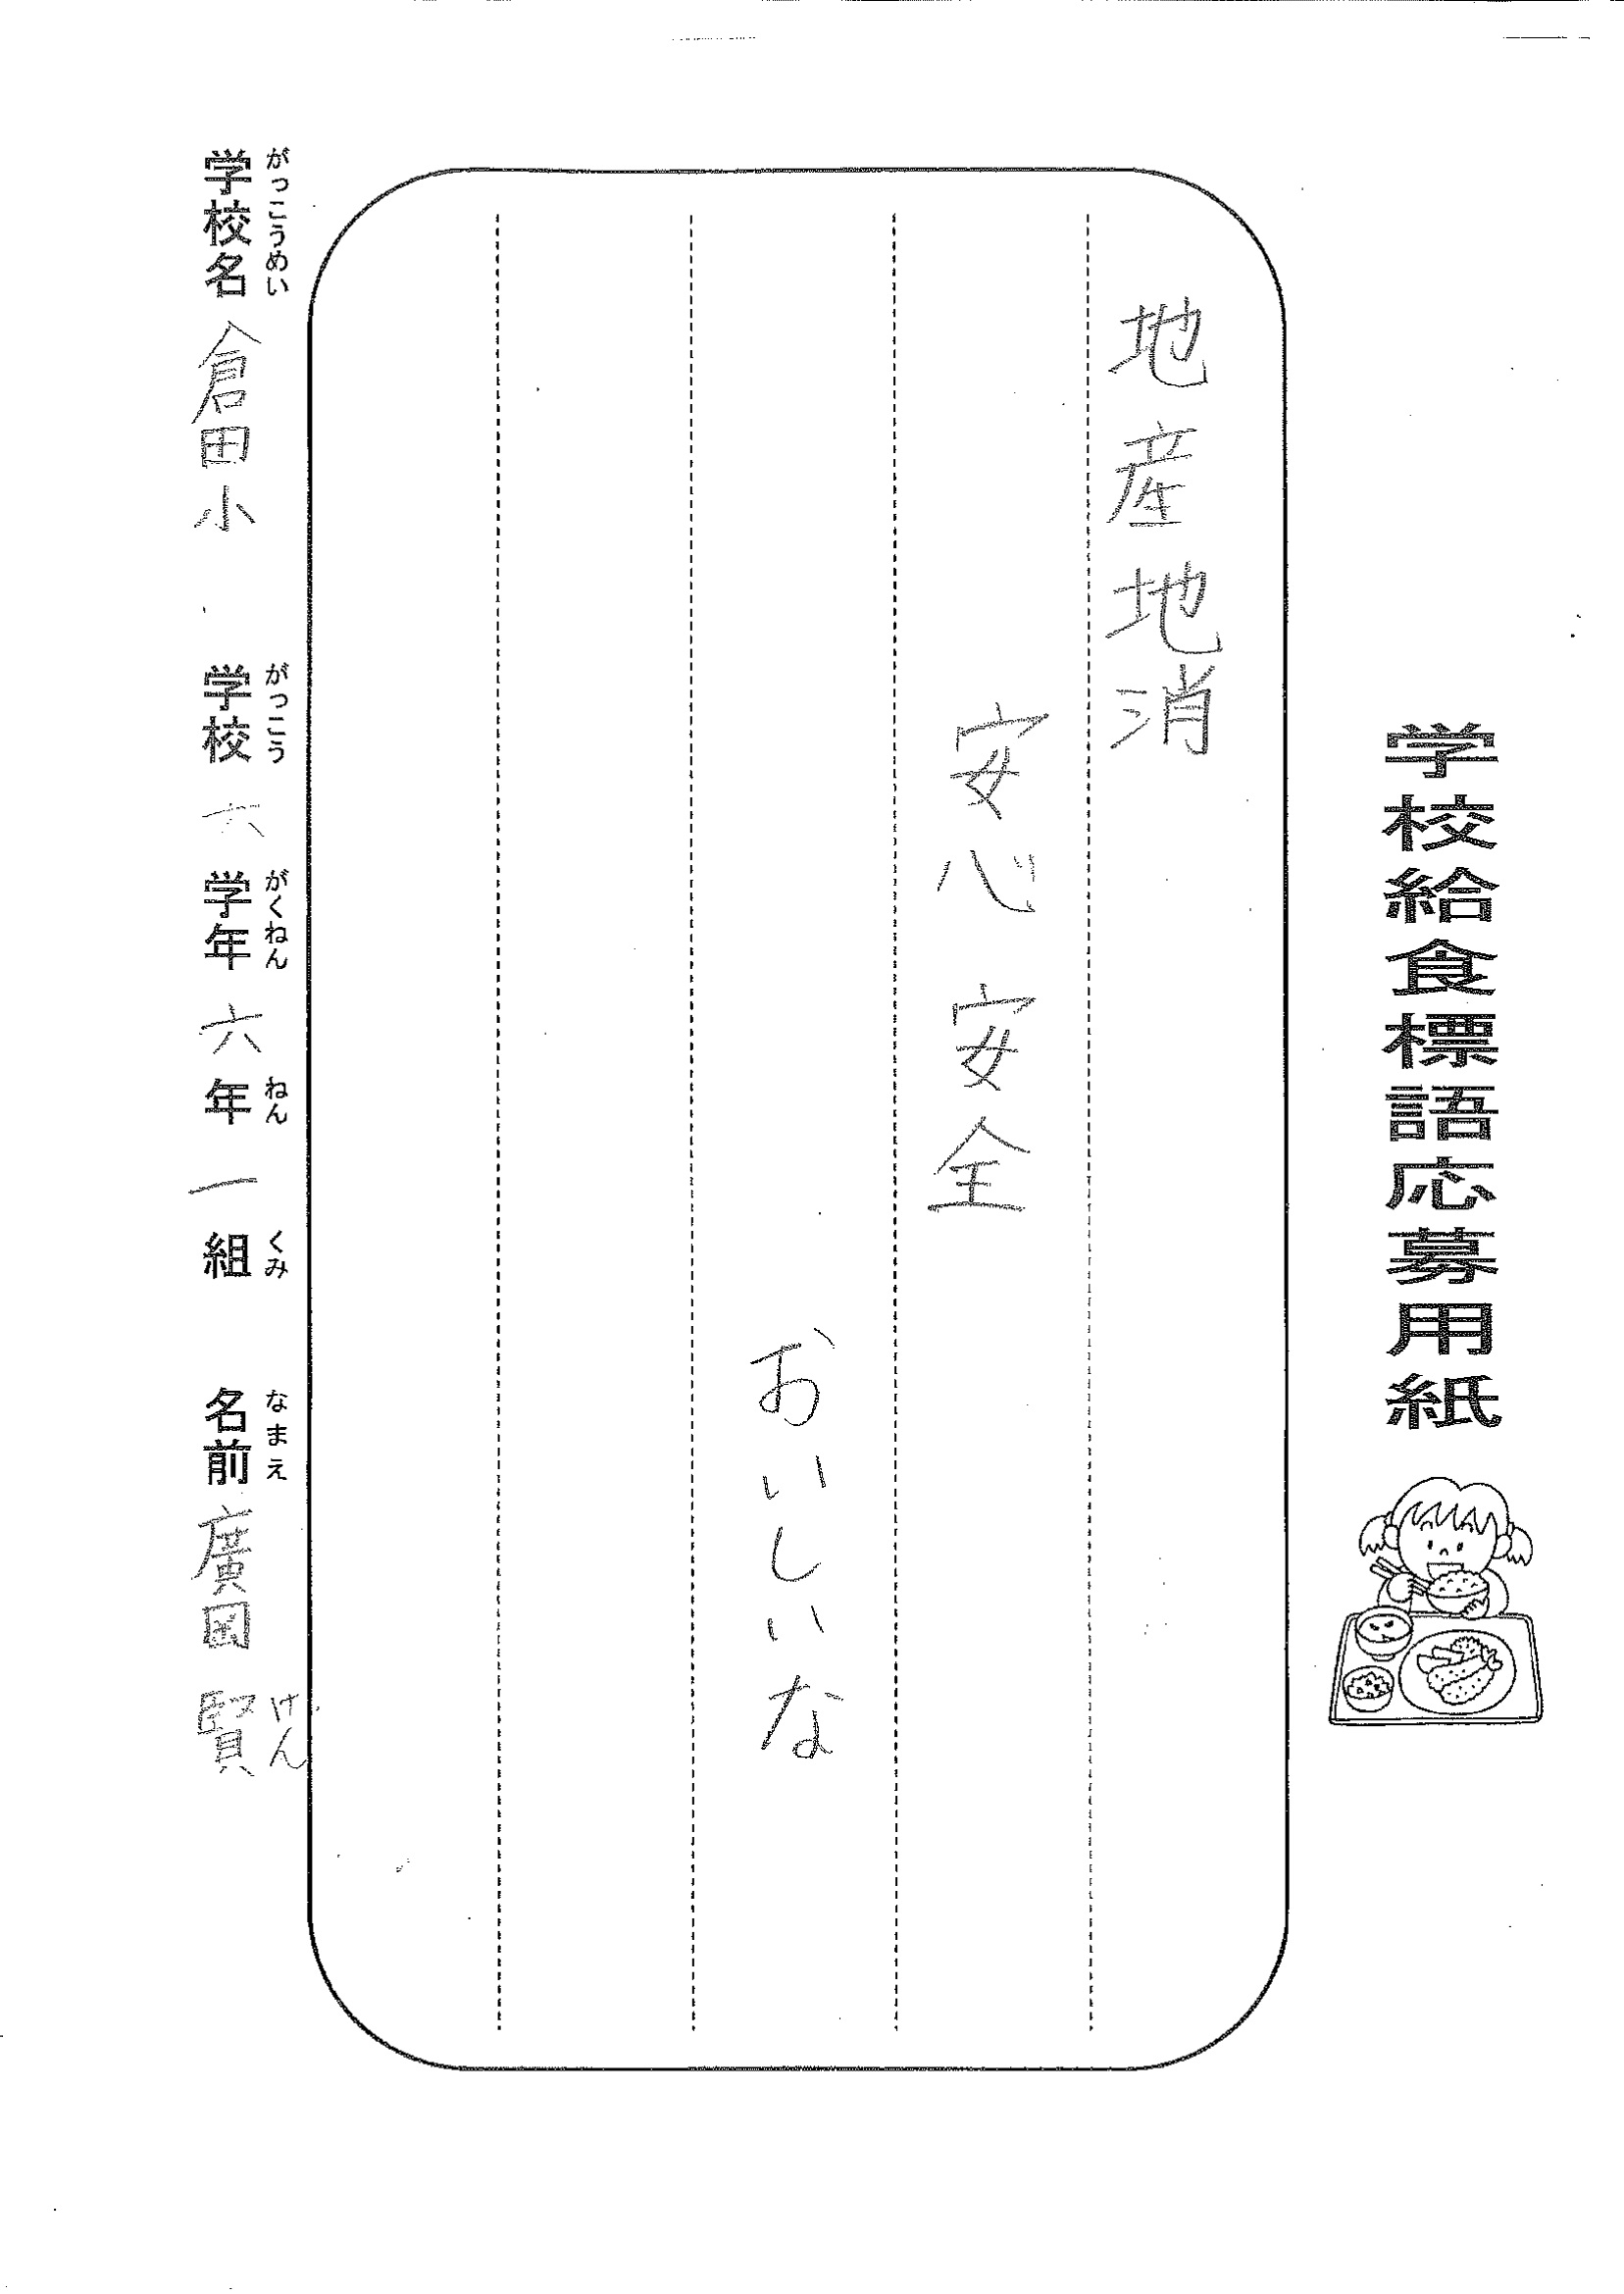 学校給食標語応募用紙
地産地消
安心安全
おいしいな
がっこうめい がっこう がくねん ねん くみ なまえ けん
学校名 倉田小 学校 六 学年 六 年 一 組 名前 廣岡 賢